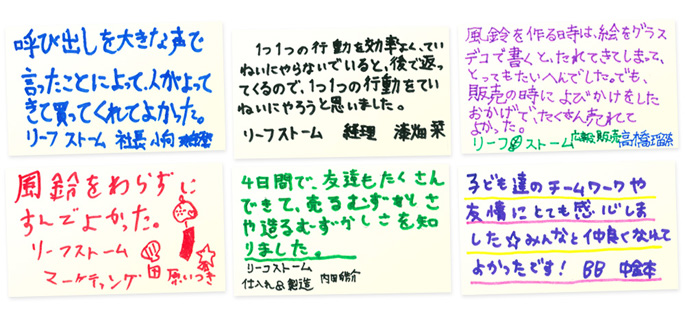 呼び出しを大きな声で
言ったことによって、人がよって
きて買ってくれてよかった。
リーフストーム 社長 小向
1つ1つの行動を効率よく、てい
ねいにやらないでいると、後で返っ
てくるので、1つ1つの行動をてい
ねいにやろうと思いました。
リーフストーム 経理 漆畑 栞
風鈴を作る時は、絵をグラス
デコで書くと、たれてきてしまって、
とってもたいへんでした。でも、
販売の時によびかけをした
おかげで、たくさん売れて
よかった。
リーフストーム 広報販売 高橋瑠
風鈴をわらずに
すんでよかった。
リーフストーム
マーケティング 原いつき
4日間で、友達もたくさん
できて、売るむずかしさ
や造るむずかしさを知
りました。
リーフストーム
仕入れ&製造 内田皓介
子ども達のチームワークや
友情にとても感心しま
した☆みんなと仲良くなれて
よかったです! BB 中倉本